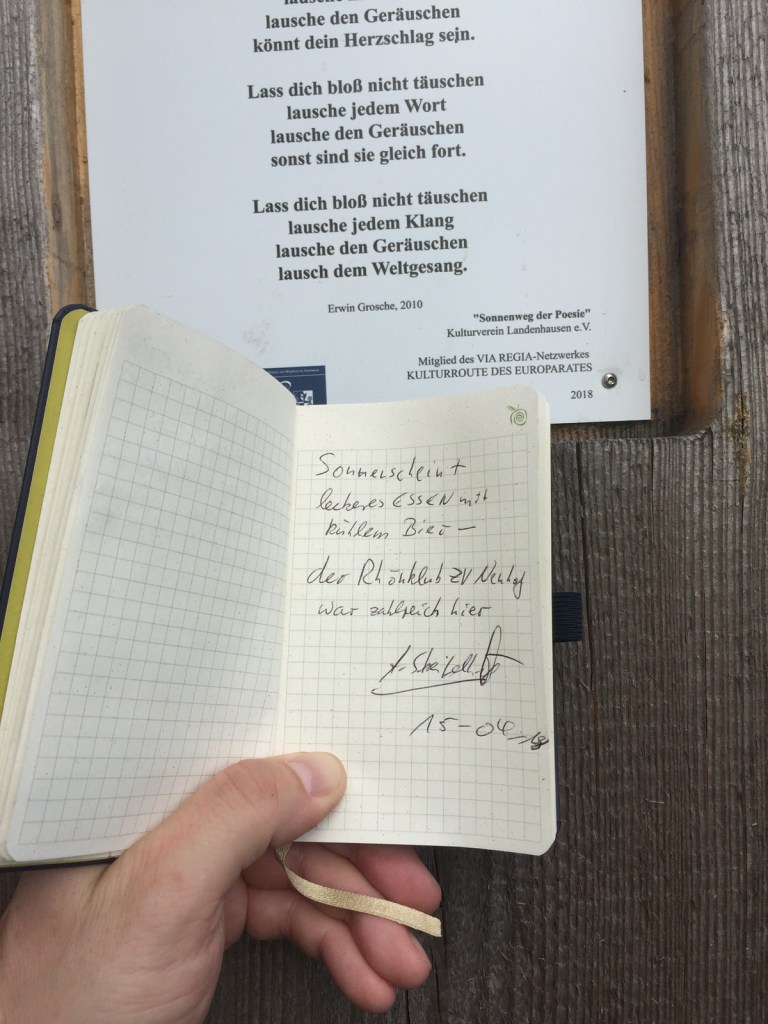 lausche den Geräuschen
könnt dein Herzschlag sein.
Lass dich bloß nicht täuschen
lausche jedem Wort
lausche den Geräuschen
sonst sind sie gleich fort.
Lass dich bloß nicht täuschen
lausche jedem Klang
lausche den Geräuschen
lausch dem Weltgesang.
Erwin Grosche, 2010
"Sonnenweg der Poesie"
Kulturverein Landenhausen e.V.
Mitglied des VIA REGIA-Netzwerkes
KULTURROUTE DES EUROPARATES
2018
Sonnenschein +
leckeres ESSEN mit
kühlem Bier –
der Rhönklub ZV Neuhof
war zahlreich hier
15-04-18